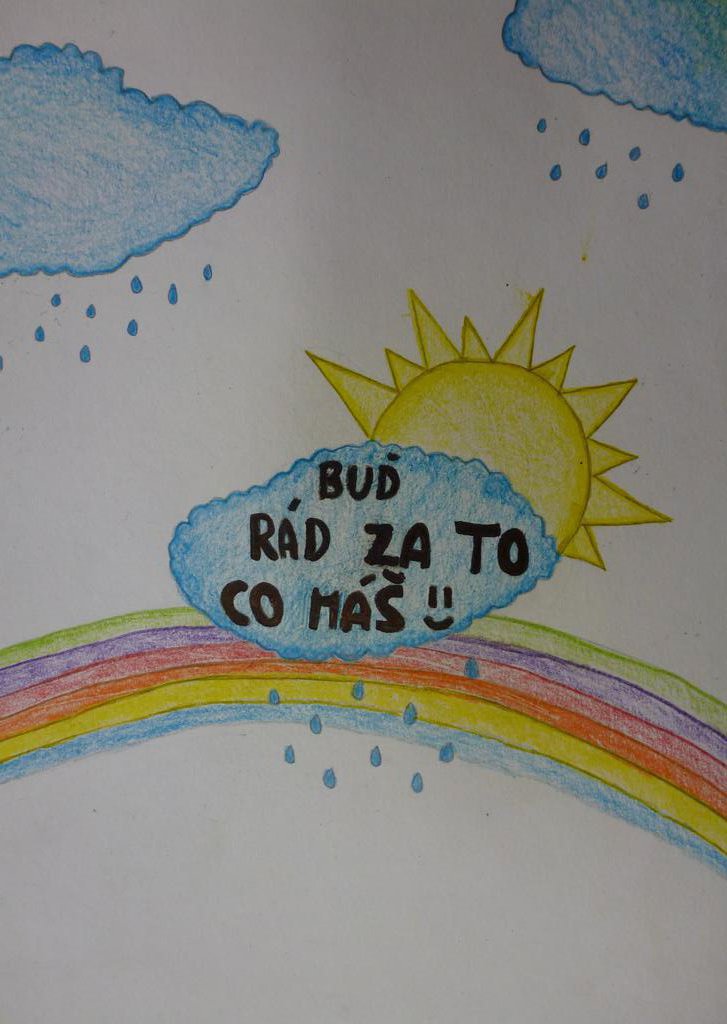 BUĎ
RÁD ZA TO
CO MÁŠ !!